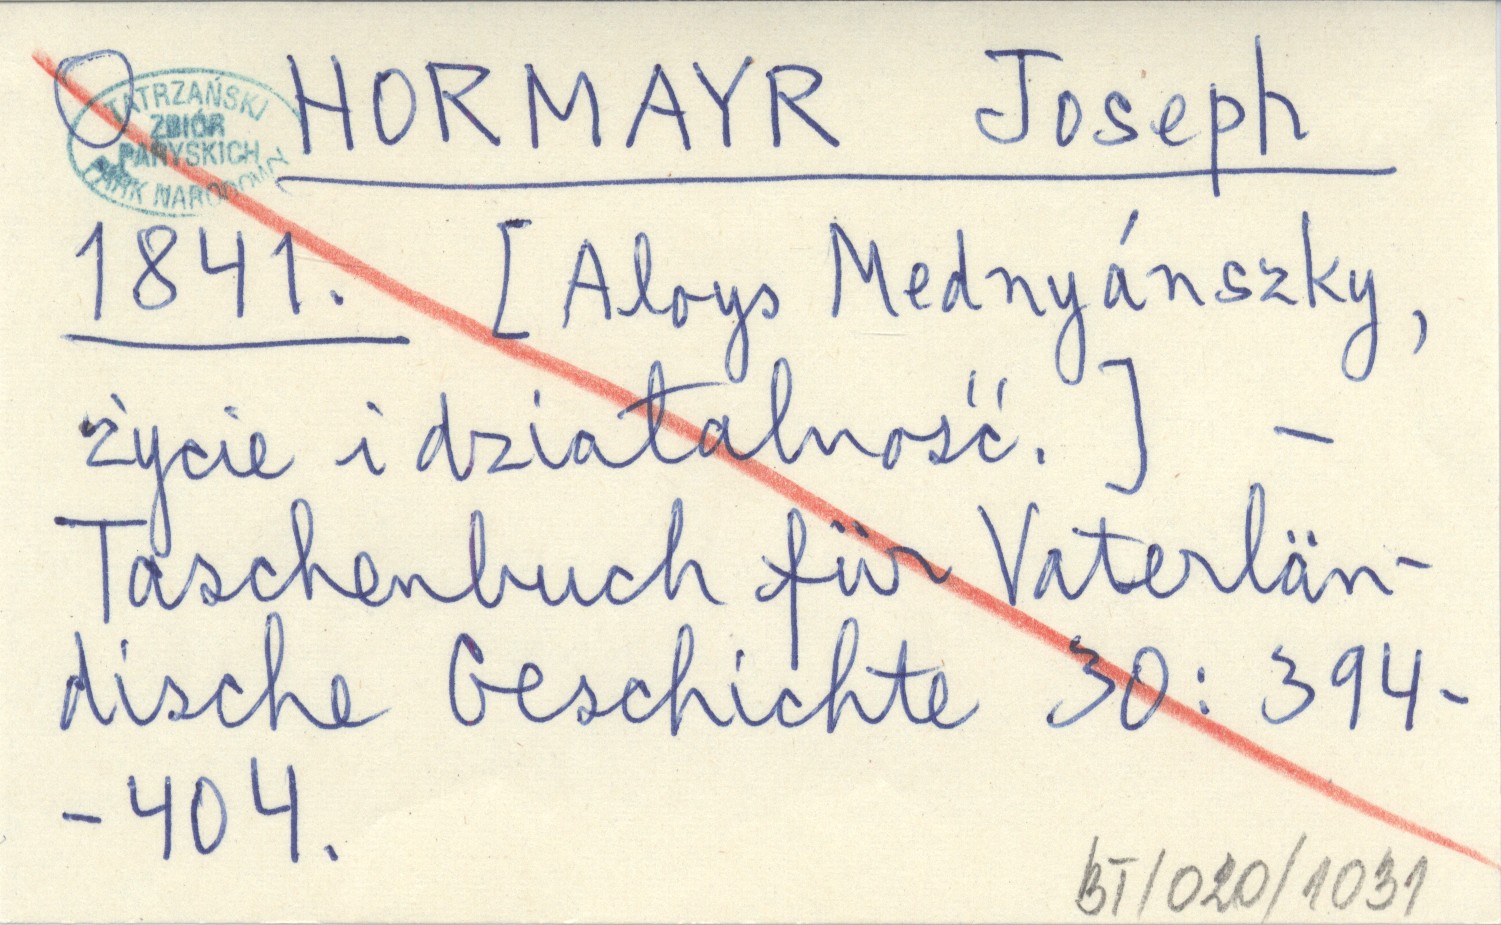 O HORMAYR Joseph
TATRZAŃSKI
ZBIÓR
PARYSKICH
PARK NARODOWY
1841. [Aloys Mednyánszky,
życie i działalność.] –
Taschenbuch für Vaterlän-
dische Geschichte 30: 394-
-404.
BT/020/1031